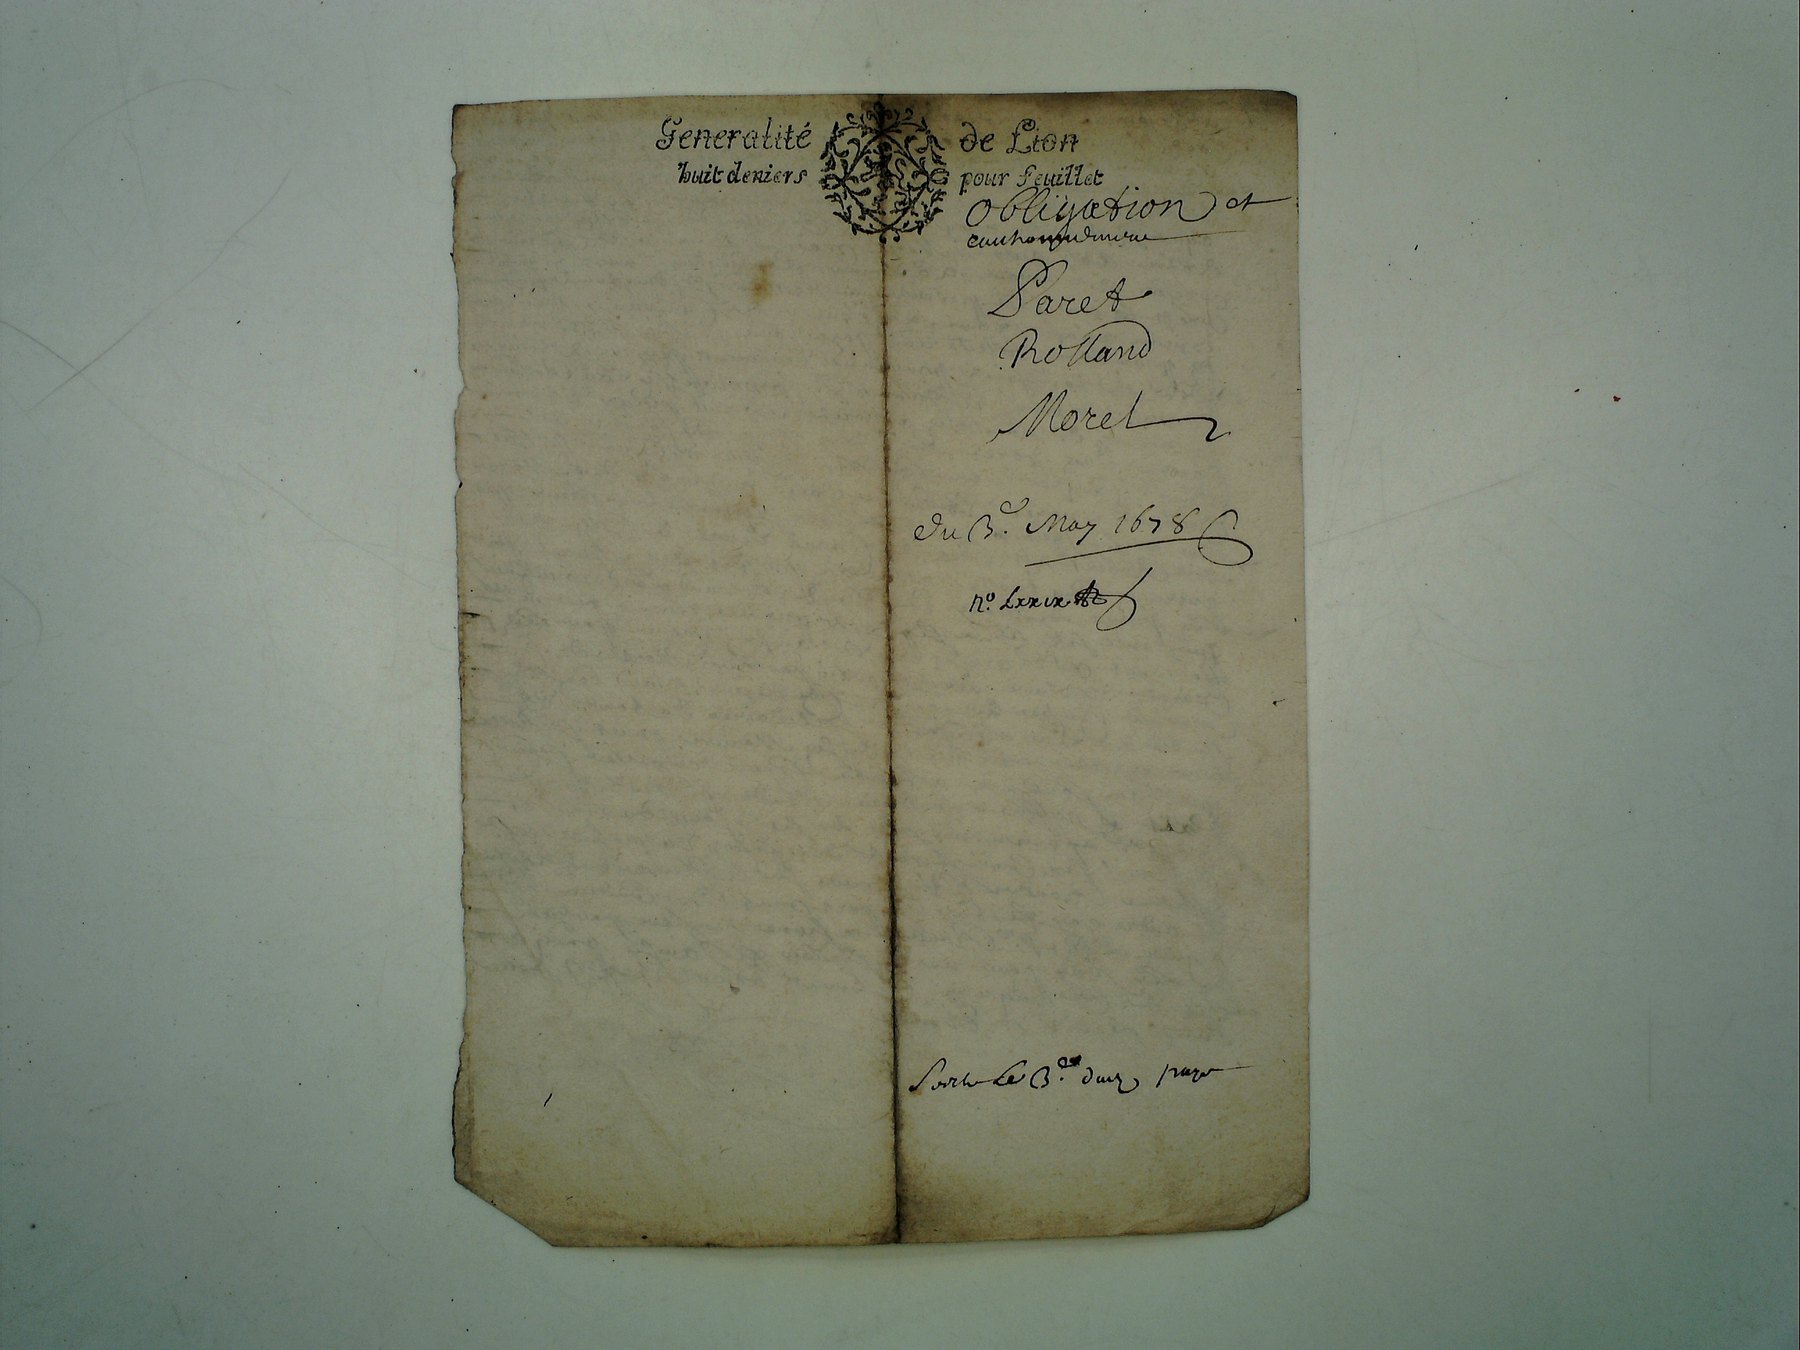 Generalité de Lion
huit deniers pour feuillet
Obligation et
Paret
Rolland
Morel
du 3.e May 1678
n.o Lxxix
Le 3.e